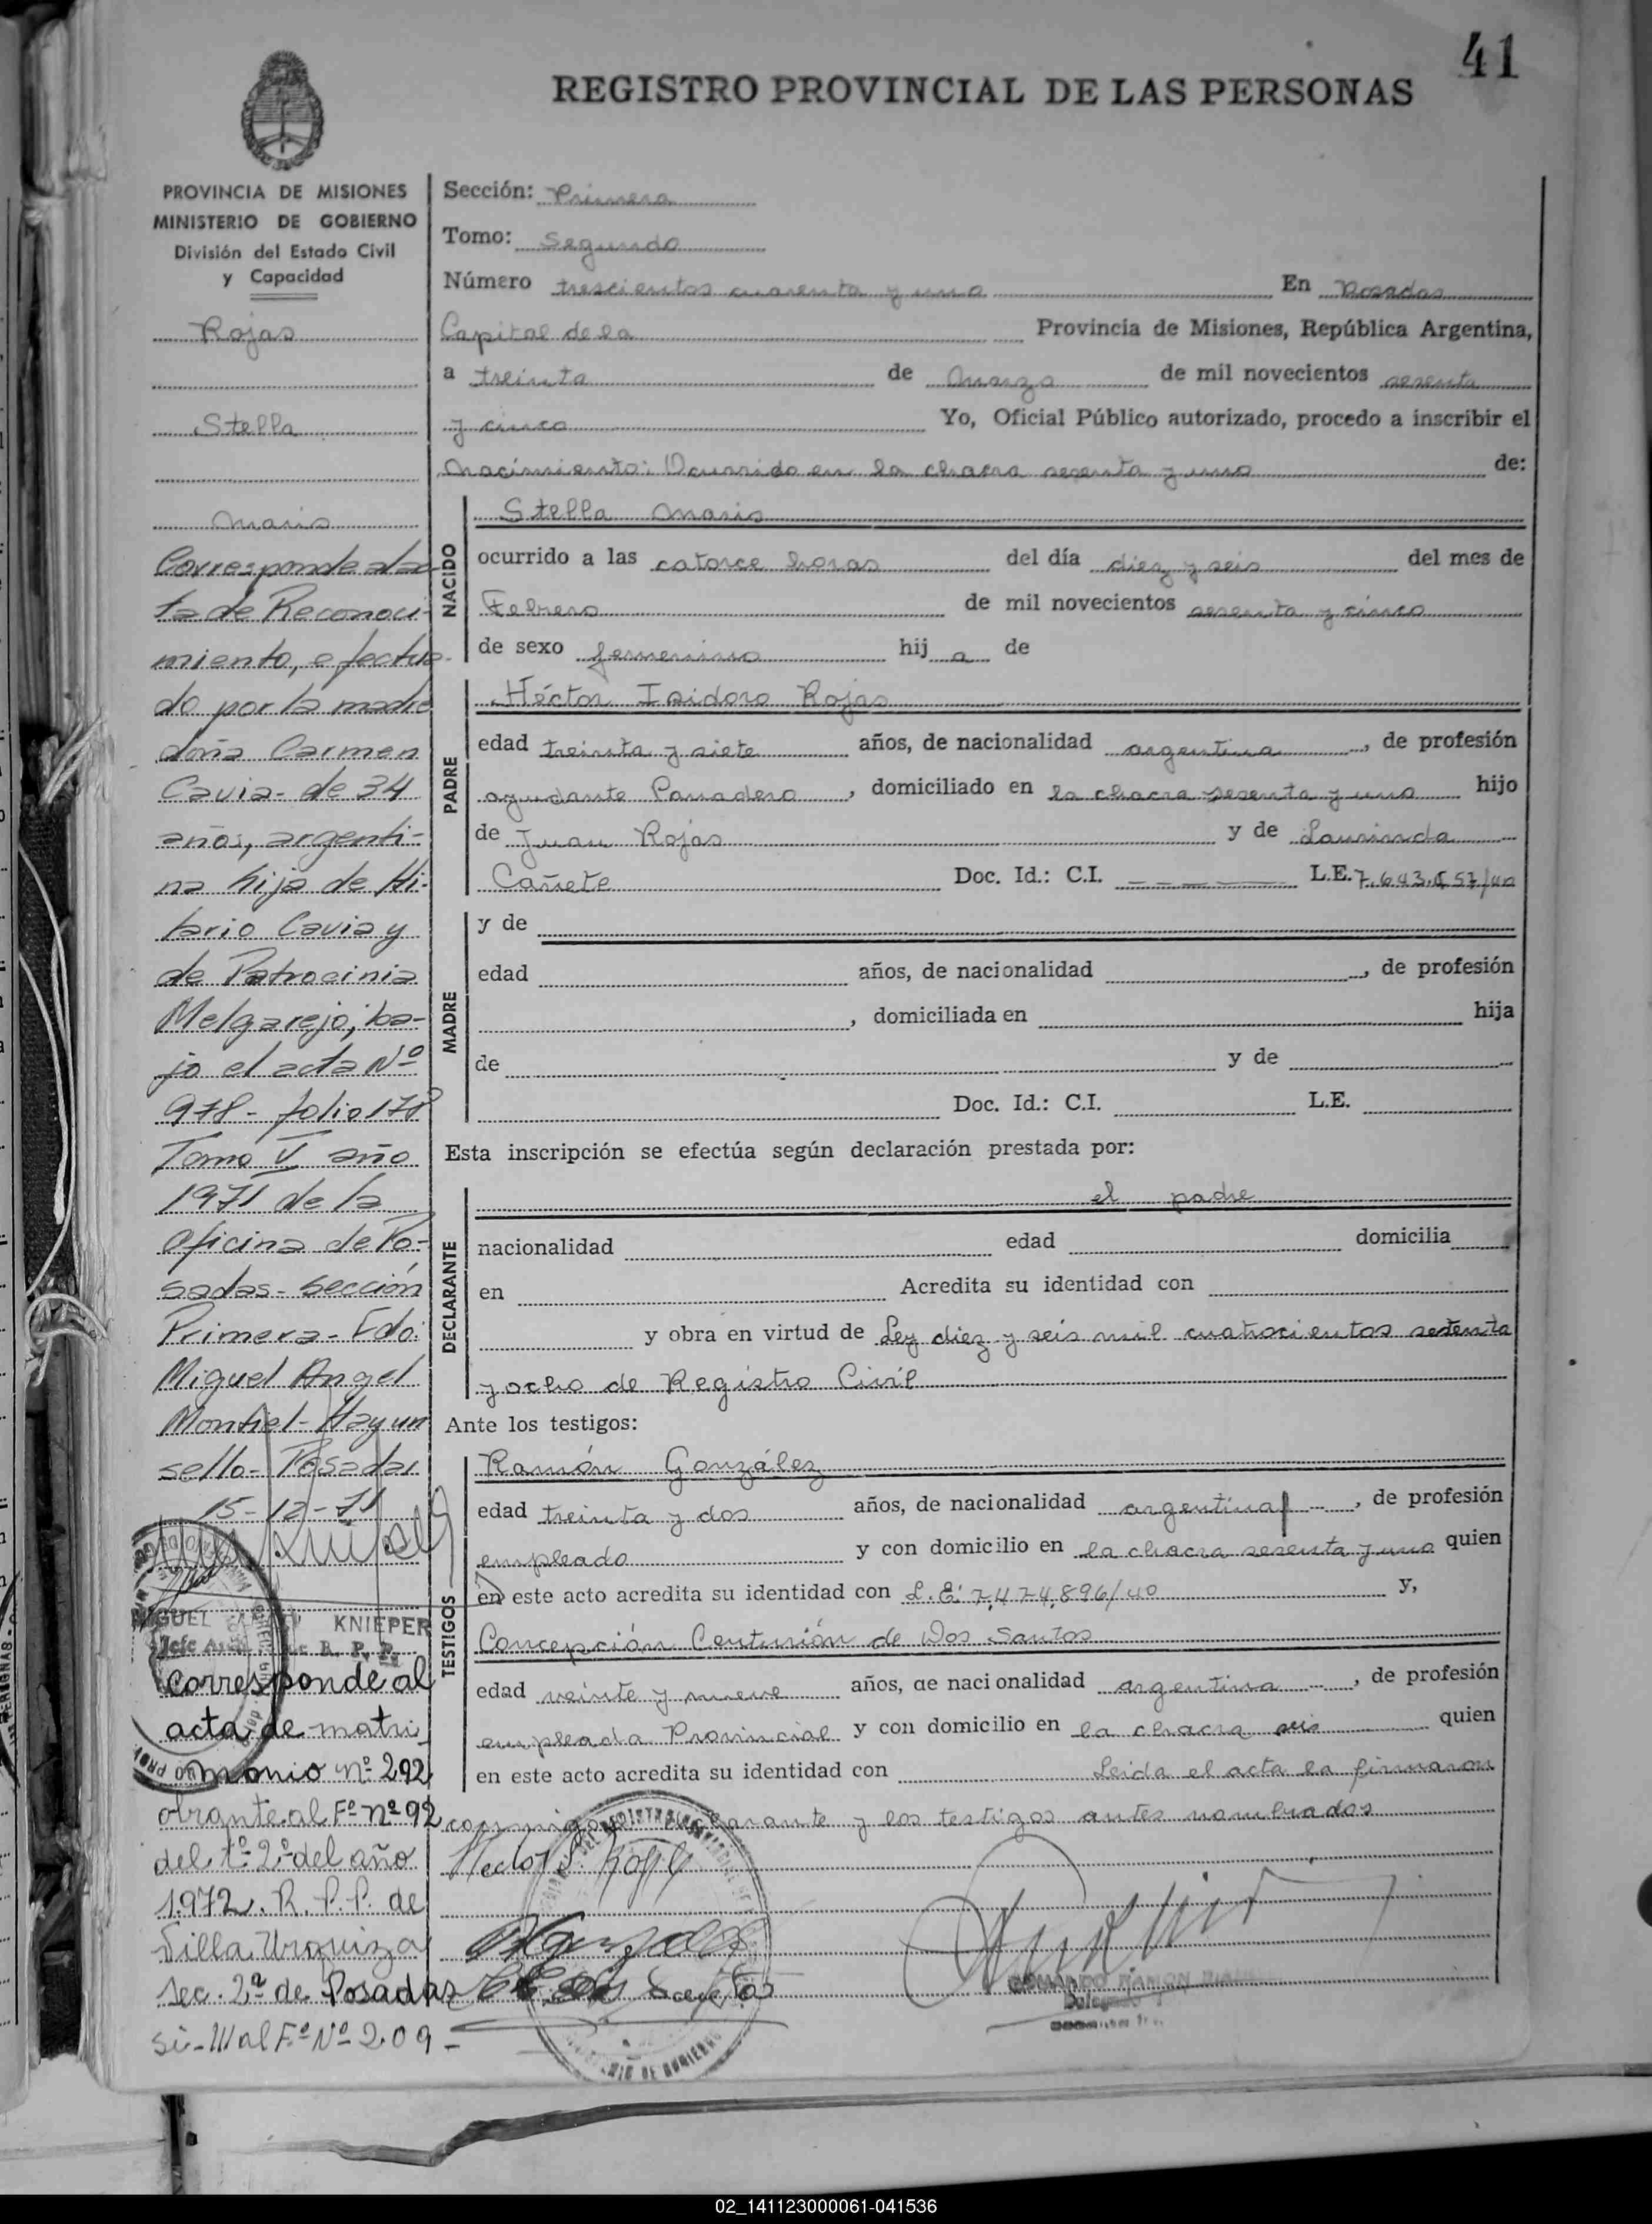 41
REGISTRO PROVINCIAL DE LAS PERSONAS
PROVINCIA DE MISIONES
MINISTERIO DE GOBIERNO
División del Estado Civil
y Capacidad
Rojas
Stella
Maris
Corresponde al ac-
ta de Reconoci-
miento, efectua-
do por la madre
doña Carmen
Cavia- de 34
años, argenti-
na hija de Hi-
lario Cavia y
de Patrocinia
Melgarejo, ba-
jo el acta Nº
978- folio 178
Tomo V año
1971 de la
Oficina de Po-
sadas- Sección
Primera- Fdo:
Miguel Angel
Montiel- Hay un
sello- Posadas
15-12-71
MIGUEL KNIEPER
Jefe R. P. P.
Corresponde al
acta de matri
monio nº 292
obrante al Fº nº 92
del tº 2º del año
1972. R. P. P. de
Villa Urquiza
sec. 2ª de Posadas
si-Wal Fº Nº 209-
Sección: Primera
Tomo: Segundo
Número trescientos cuarenta y uno En Posadas
Capital de la Provincia de Misiones, República Argentina,
a treinta de Marzo de mil novecientos sesenta
y cinco Yo, Oficial Público autorizado, procedo a inscribir el
Nacimiento: Ocurrido en la chacra sesenta y uno de:
NACIDO
Stella Maris
ocurrido a las catorce horas del día diez y seis del mes de
Febrero de mil novecientos sesenta y cinco
de sexo femenino hij a de
PADRE
Héctor Isidoro Rojas
edad treinta y siete años, de nacionalidad argentina, de profesión
ayudante Panadero, domiciliado en la chacra sesenta y uno hijo
de Juan Rojas y de Laurinda
Cañete Doc. Id.: C.I. ------ L.E. 7.643.157/40
MADRE
y de
edad años, de nacionalidad , de profesión
, domiciliada en hija
de y de
Doc. Id.: C.I. L.E.
Esta inscripción se efectúa según declaración prestada por:
DECLARANTE
el padre
nacionalidad edad domicilia
en Acredita su identidad con
y obra en virtud de Ley diez y seis mil cuatrocientos setenta
y ocho de Registro Civil
Ante los testigos:
TESTIGOS
Ramón González
edad treinta y dos años, de nacionalidad argentina, de profesión
empleado y con domicilio en la chacra sesenta y uno quien
en este acto acredita su identidad con L.E: 7,474,896/40 y,
Concepción Centurión de Dos Santos
edad veinte y nueve años, de nacionalidad argentina, de profesión
empleada Provincial y con domicilio en la chacra seis quien
en este acto acredita su identidad con Leida el acta la firmaron
conmigo y los testigos antes nombrados
Hector I. Rojas
02_141123000061-041536